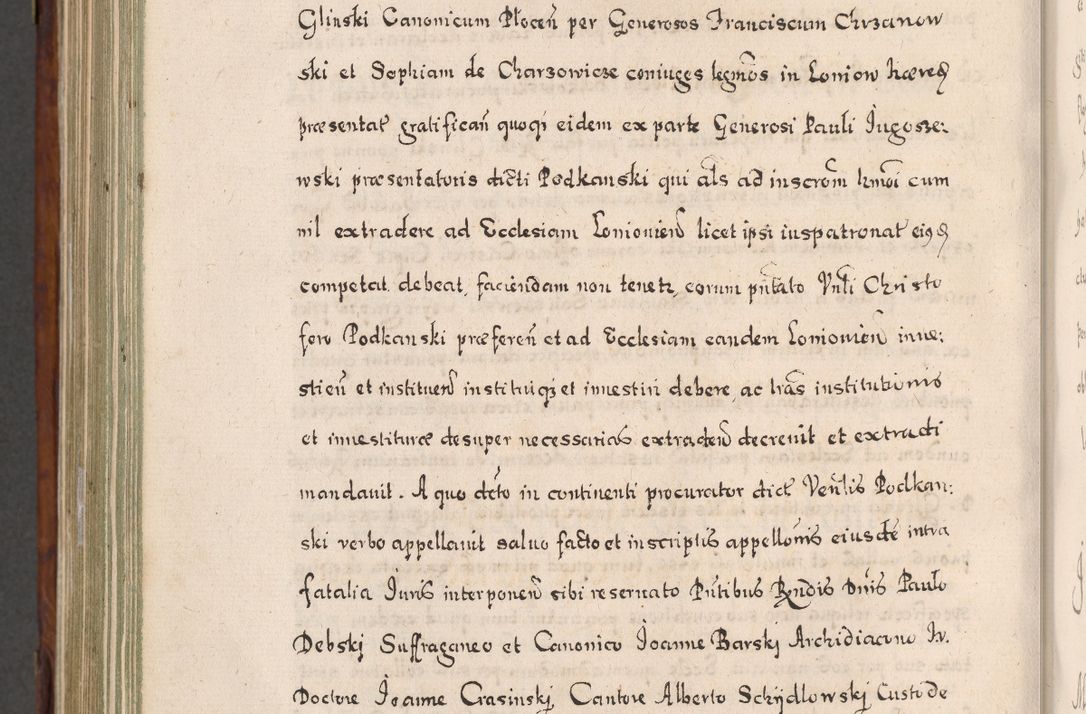 Glinski Canonicum Płoceñ per Generosos Franciscum Chrzanow
ski et Sophiam de Charzowicze coniuges legmôs in Loniow hæred
præsentat gratificañ quoqꝫ eidem ex parte Generosi Pauli Jugosze:
wski præsentatoris dicti Podkanski qui als ad inscrom hmoi cum
nil extradere ad Ecclesiam Lonionień licet ipsi iuspatronat eiꝰd
competat debeat, faciendam non tenetr, eorum pntato Vnli Christo
fero Podkanski præfereñ et ad Ecclesiam eandem Lonionień inue:
stień et instituend instituiqꝫ et inuestiri debere, ac lras institutionis
et inuestituræ desuper necessarias extradend decreuit et extradi
mandauit. A quo dcto in continenti procurator dict Venlis Podkan:
ski verbo appellauit saluo facto et inscriptis appellonis eiusde intra
fatalia Juris interponend sibi reseruato Pntibus Rndis Dnis Paulo
Debskj Suffraganeo et Canonico Joanne Barskj Archidiacono Jv.
Doctore Joanne Crasinskj, Cantore Alberto Schÿdlowskj Custode